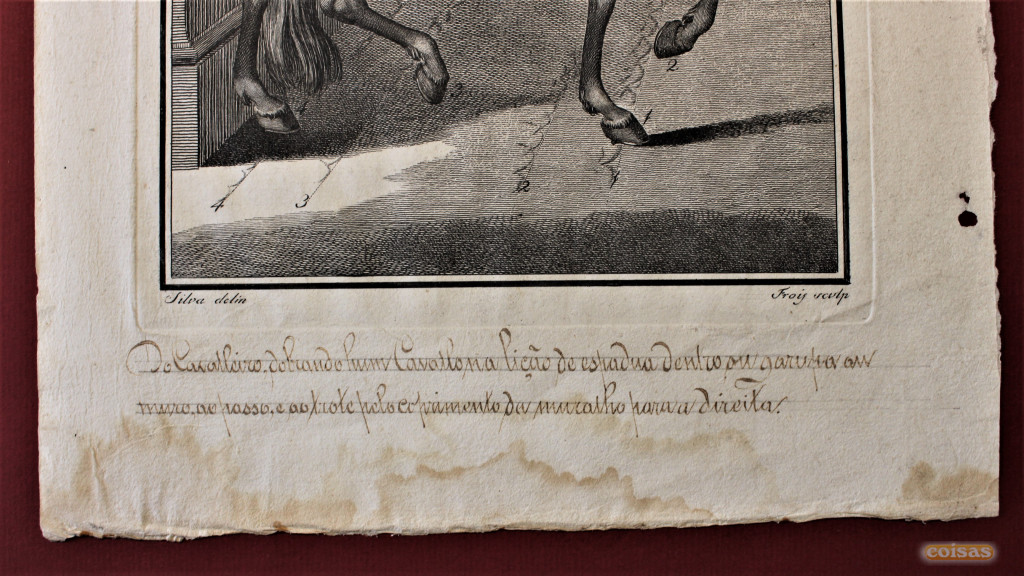 1
3
2
1
4
3
2
1
Silva delin
Frois sculp
Do Cavalleiro, dobrando hum Cavallo, na lição de espadua dentro, ou garupa ao
muro, ao passo, e ao trote pelo comprimento da muralha para a direita.
coisas